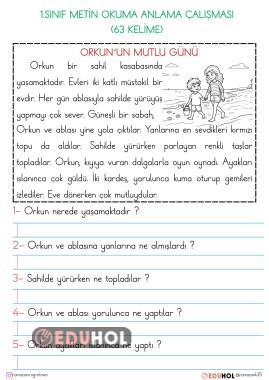 1.SINIF METİN OKUMA ANLAMA ÇALIŞMASI
(63 KELİME)
ORKUN'UN MUTLU GÜNÜ
Orkun bir sahil kasabasında
yaşamaktadır. Evleri iki katlı müstakil bir
evdir. Her gün ablasıyla sahilde yürüyüş
yapmayı çok sever. Güneşli bir sabah,
Orkun ve ablası yine yola çıktılar. Yanlarına en sevdikleri kırmızı
topu da aldılar. Sahilde yürürken parlayan renkli taşlar
topladılar. Orkun, kıyıya vuran dalgalarla oyun oynadı. Ayakları
ıslanınca çok güldü. İki kardeş, yorulunca kuma oturup gemileri
izlediler. Eve dönerken çok mutluydular.
1- Orkun nerede yaşamaktadır ?
2- Orkun ve ablasına yanlarına ne almışlardı ?
3- Sahilde yürürken ne topladılar ?
4- Orkun ve ablası yorulunca ne yaptılar ?
5- Orkun ayakları ıslanınca ne yaptı ?
EDUHOL
EDUHOL